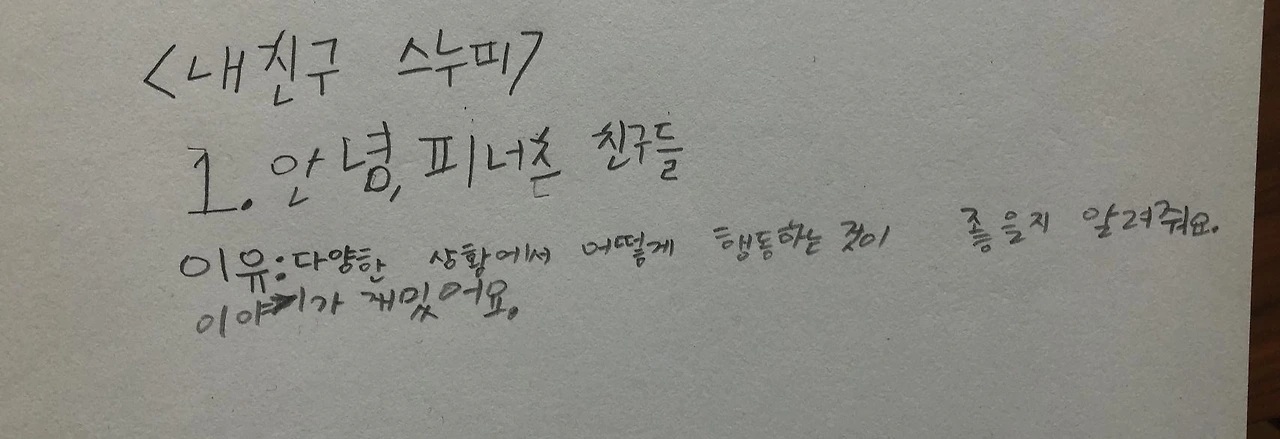 <내친구 스누피>
1. 안녕, 피너츠 친구들
이유: 다양한 상황에서 어떻게 행동하는 것이 좋을지 알려줘요.
이야기가 재밌어요.